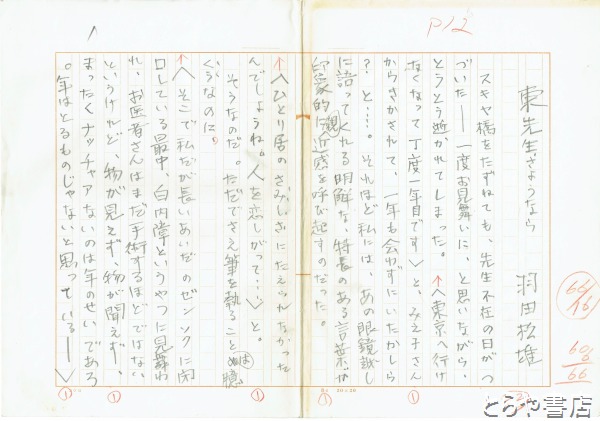 P12
東先生さようなら
羽田松雄
スキヤ橋をたずねても、先生不在の日がつ
づいた――一度お見舞いに、と思いながら、
とうとう逝かれてしまった。↑〈東京へ行け
なくなって丁度一年目です〉と、みえ子さん
からきかされて、一年も会わずにいたかしら
？と…。それほど私には、あの眼鏡越し
に語ってくれる明解な、特長のある言葉が
印象的で親近感を呼び起すのだった。
↑〈ひとり居のさみしさにたえられなかった
んでしょうね。人を恋しがって…〉と。
そうなのだ。ただでさえ筆を執ること
くうなのに。
↑〈そこで私だが長いあいだのゼンソクに閉
口している最中、白内障というやつに見舞わ
れ、お医者さんはまだ手術するほどではない
というけれど、物が見えず、物が聞えず、
まったくナッチャアないのは年のせいであろ
。年はとるものじゃないと思っている――〉
66/16
608/66
20×20
とらや書店